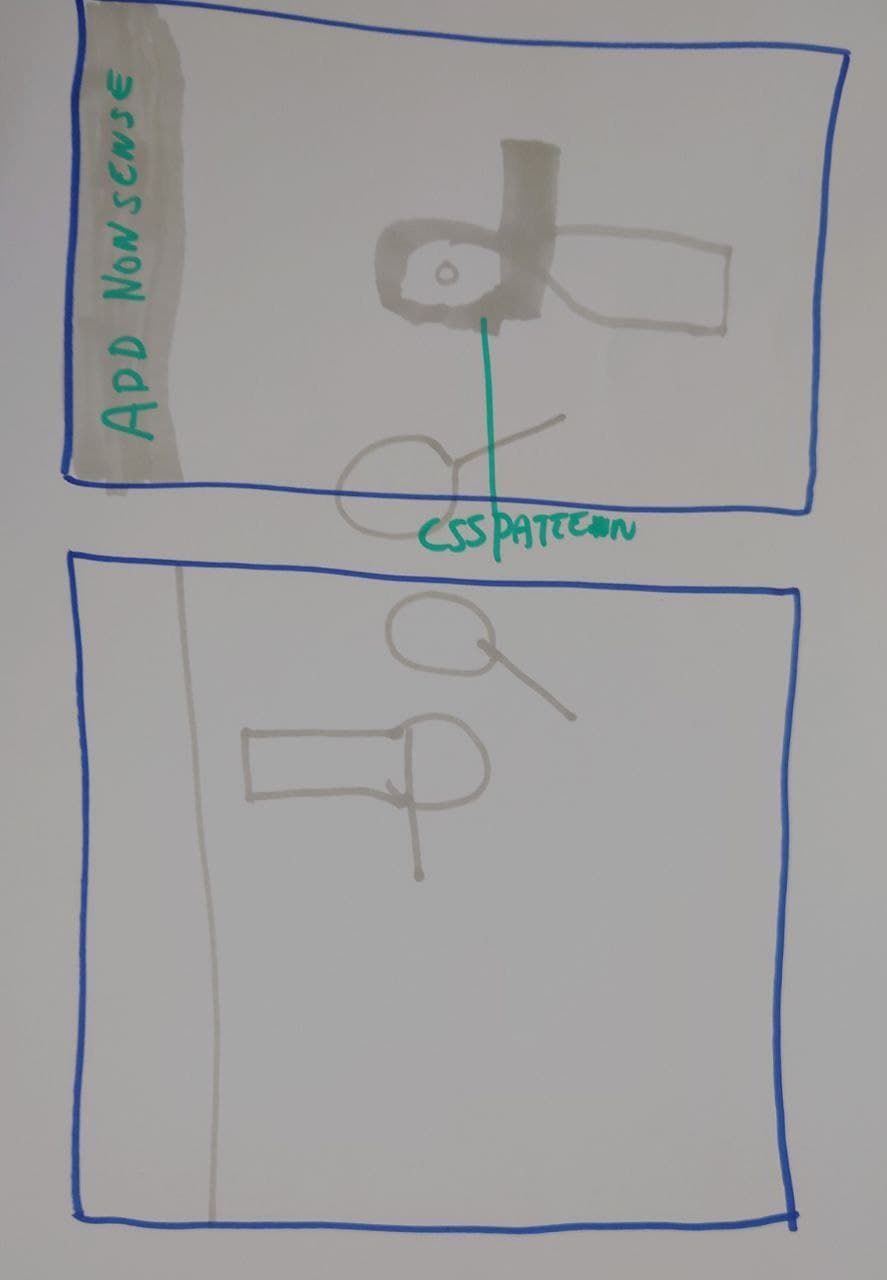 ADD NONSENSE
CSS PATTERN